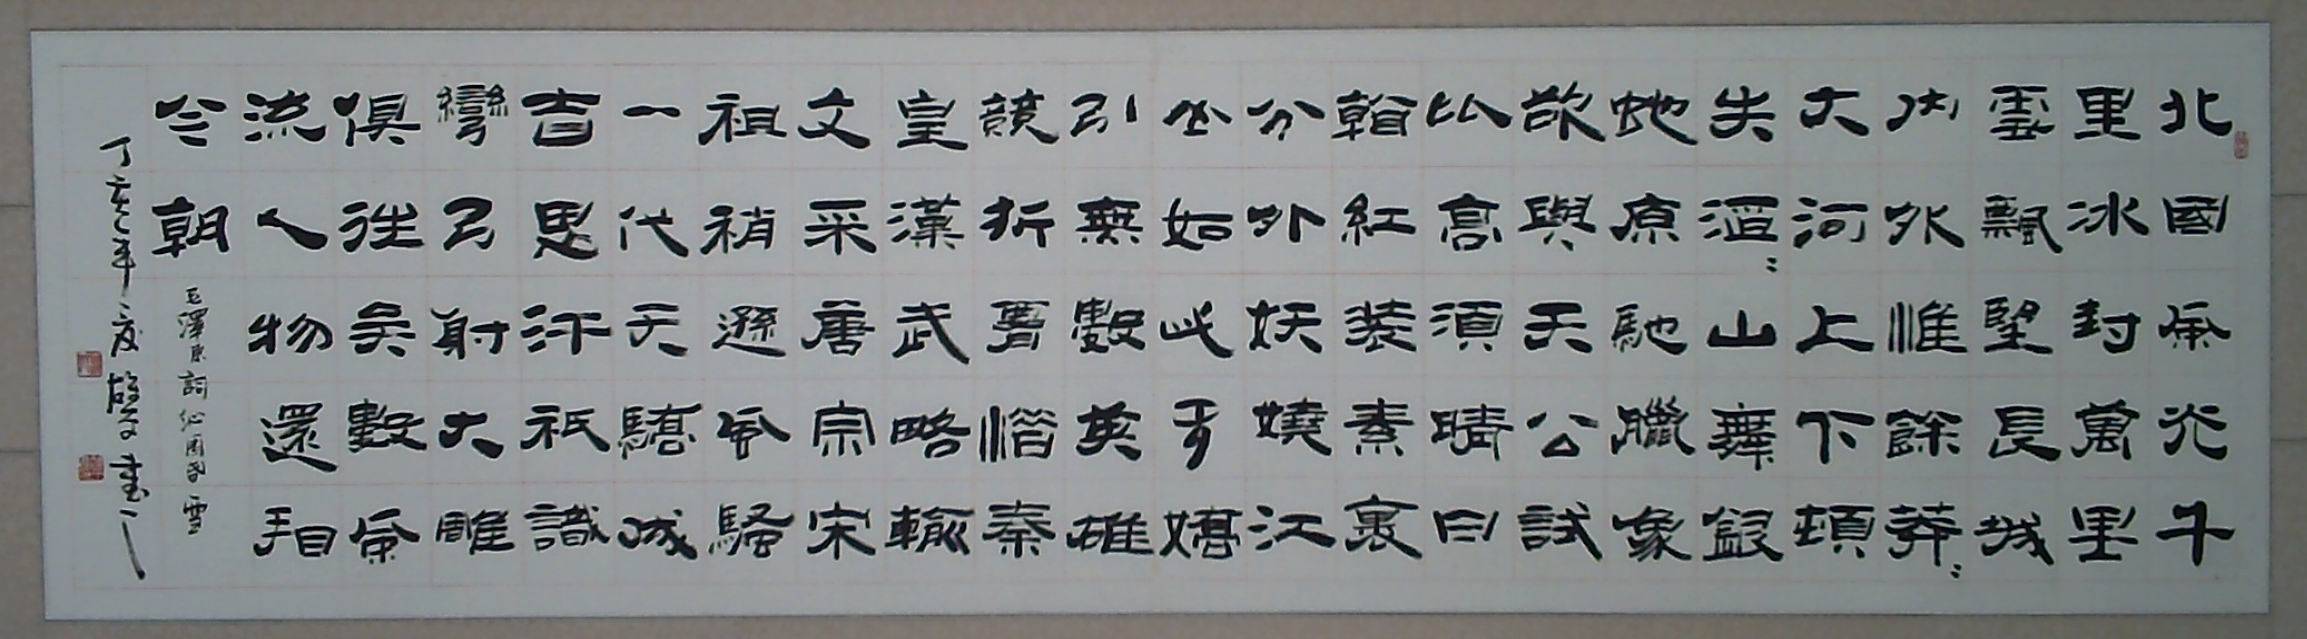 北國風光千
里冰封萬里
雪飄望長城
內外惟餘莽〻
大河上下頓
失滔〻山舞銀
蛇原馳臘象
欲與天公試
比高須晴日
看紅裝素裹
分外妖嬈江
山如此多嬌
引無數英雄
競折腰惜秦
皇漢武略輸
文采唐宗宋
祖稍遜風騷
一代天驕成
吉思汗祇識
彎弓射大雕
俱往矣數風
流人物還看
今朝
毛澤東詞沁園春雪
丁亥年之夏書